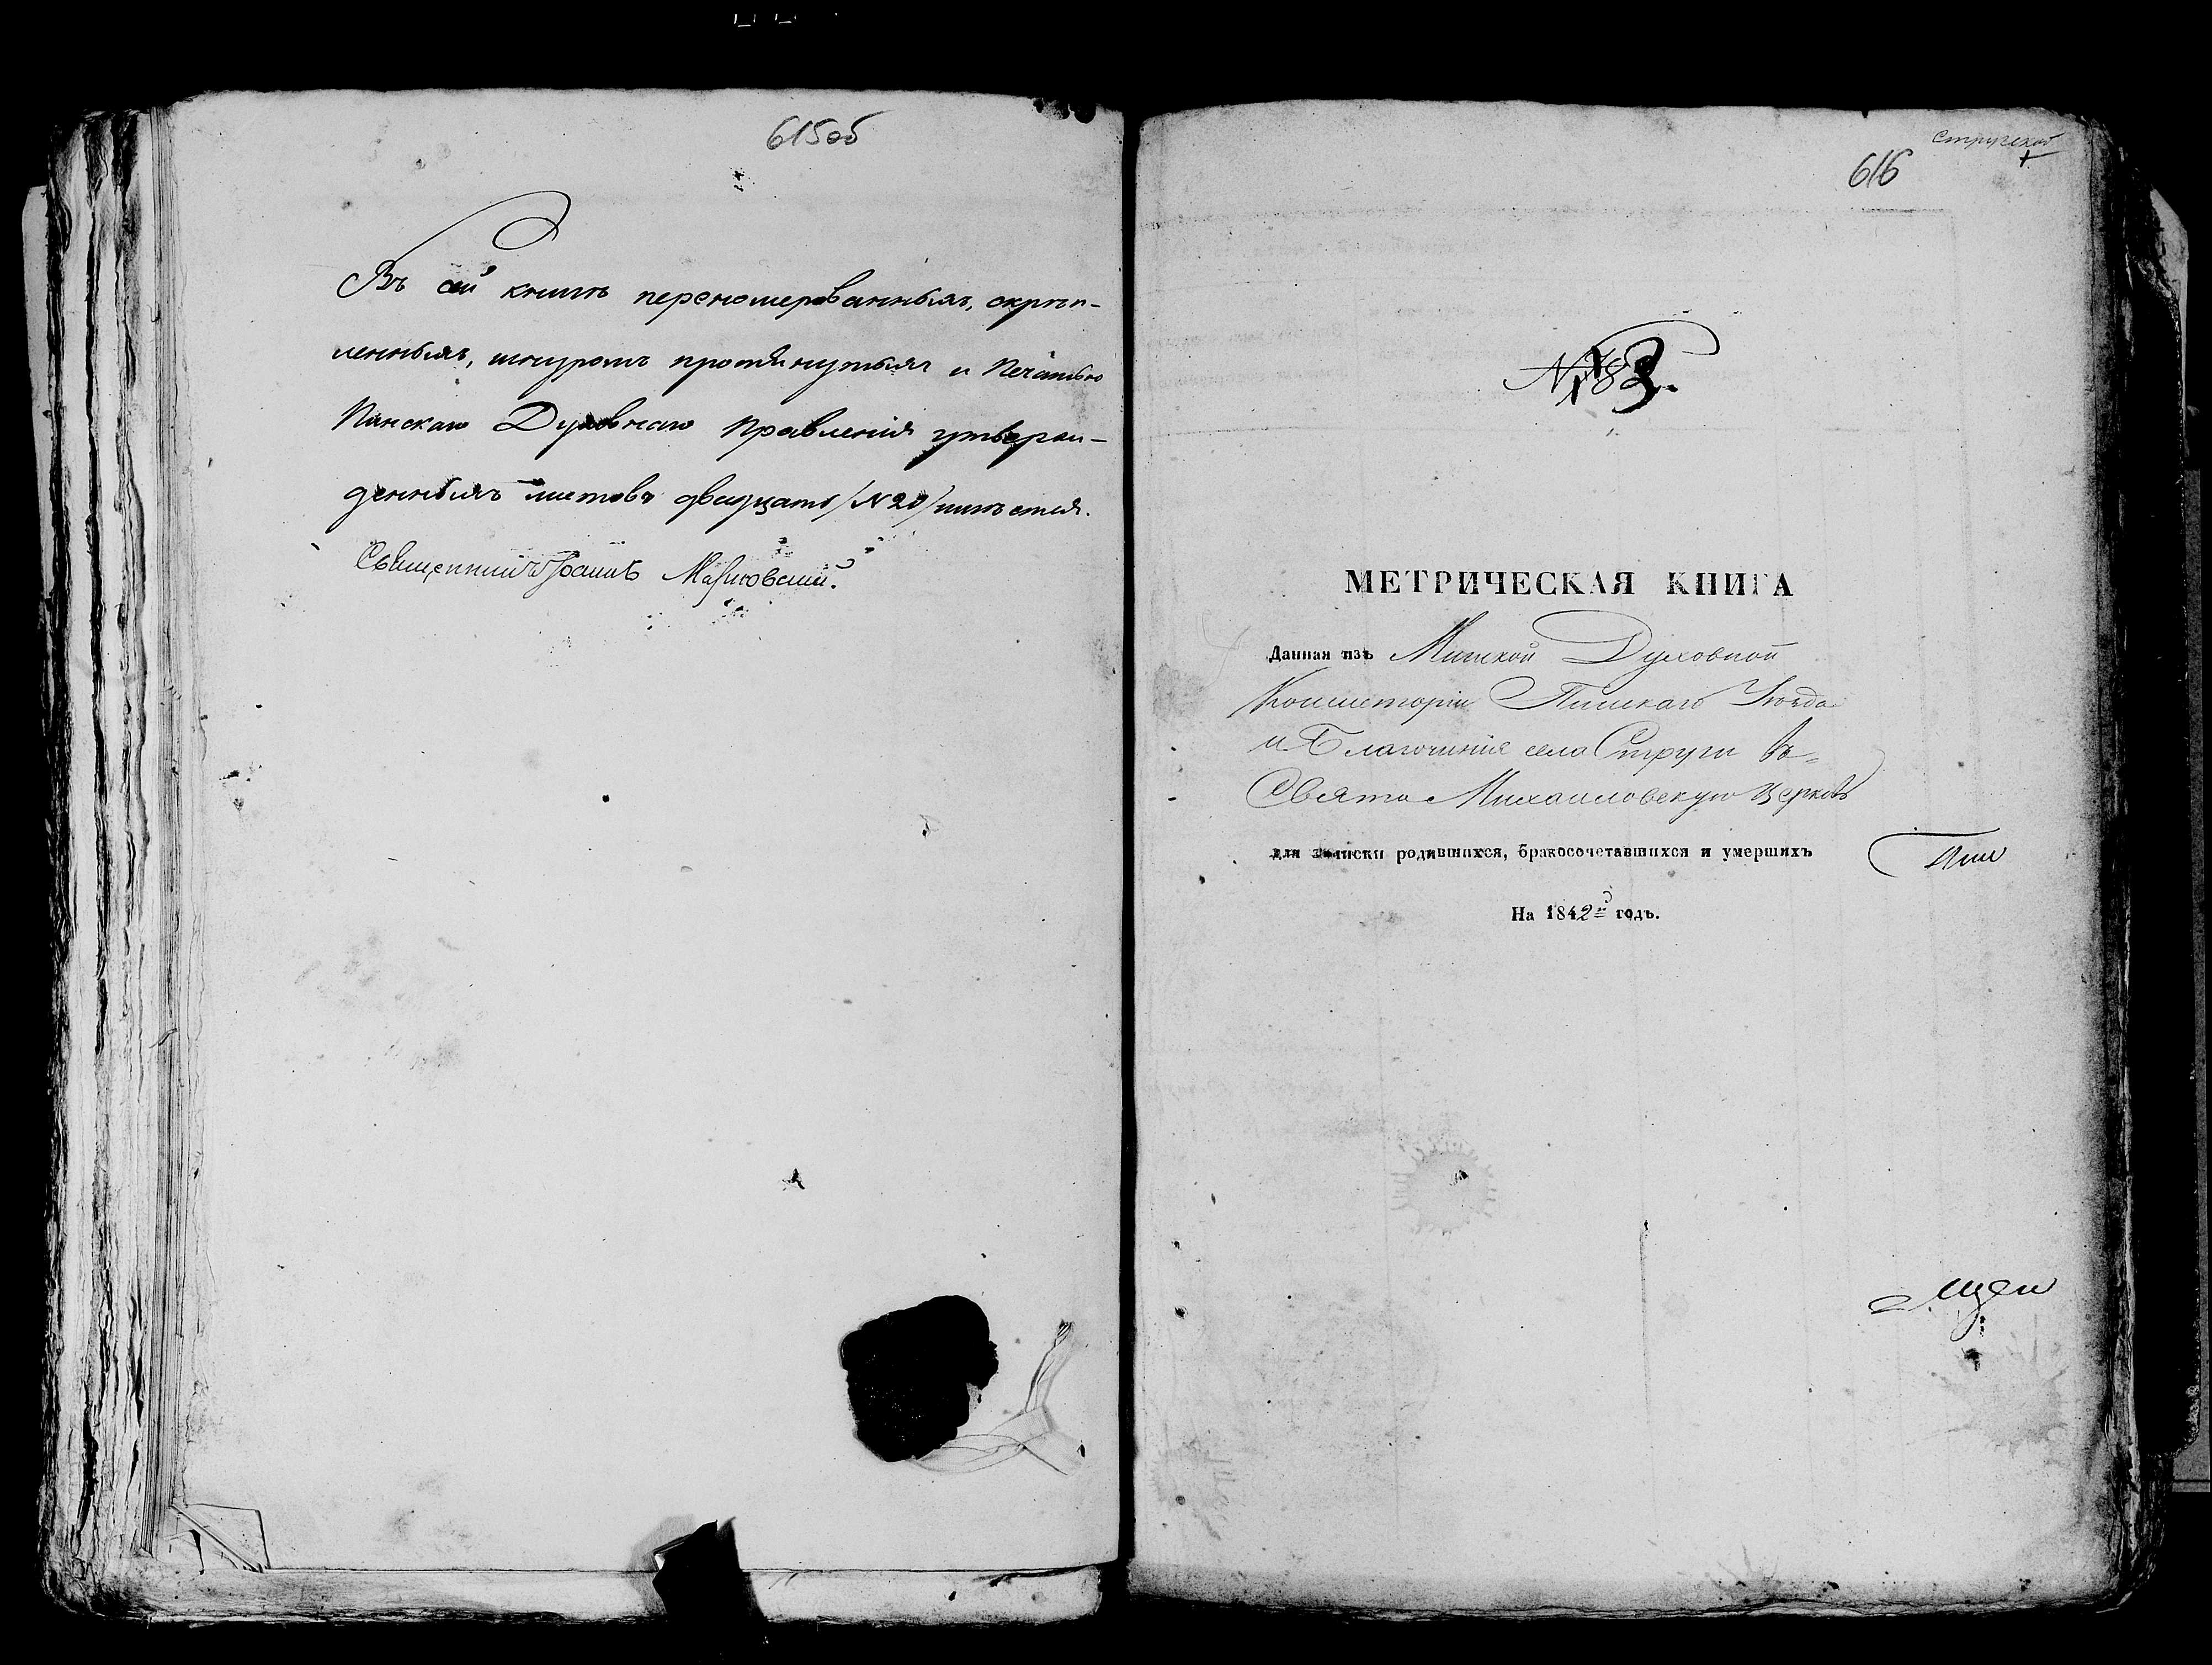 615об
Въ сей книгѣ переномерованныхъ, скрѣп-
ленныхъ, шнуромъ протянутыхъ и Печатью
Пинскаго Духовнаго Правленія утверж-
денныхъ листовъ двадцать /N 20/ имѣется.
Священникъ Іоаннъ
Стружской
616
МЕТРИЧЕСКАЯ КНИГА
Данная изъ Минской Духовной
Консисторіи Пинскаго Уѣзда
и Благочинія села Струги въ
Свято Михаиловскую Церковь
для записки родившихся, бракосочетавшихся и умершихъ
На 1842й годъ.